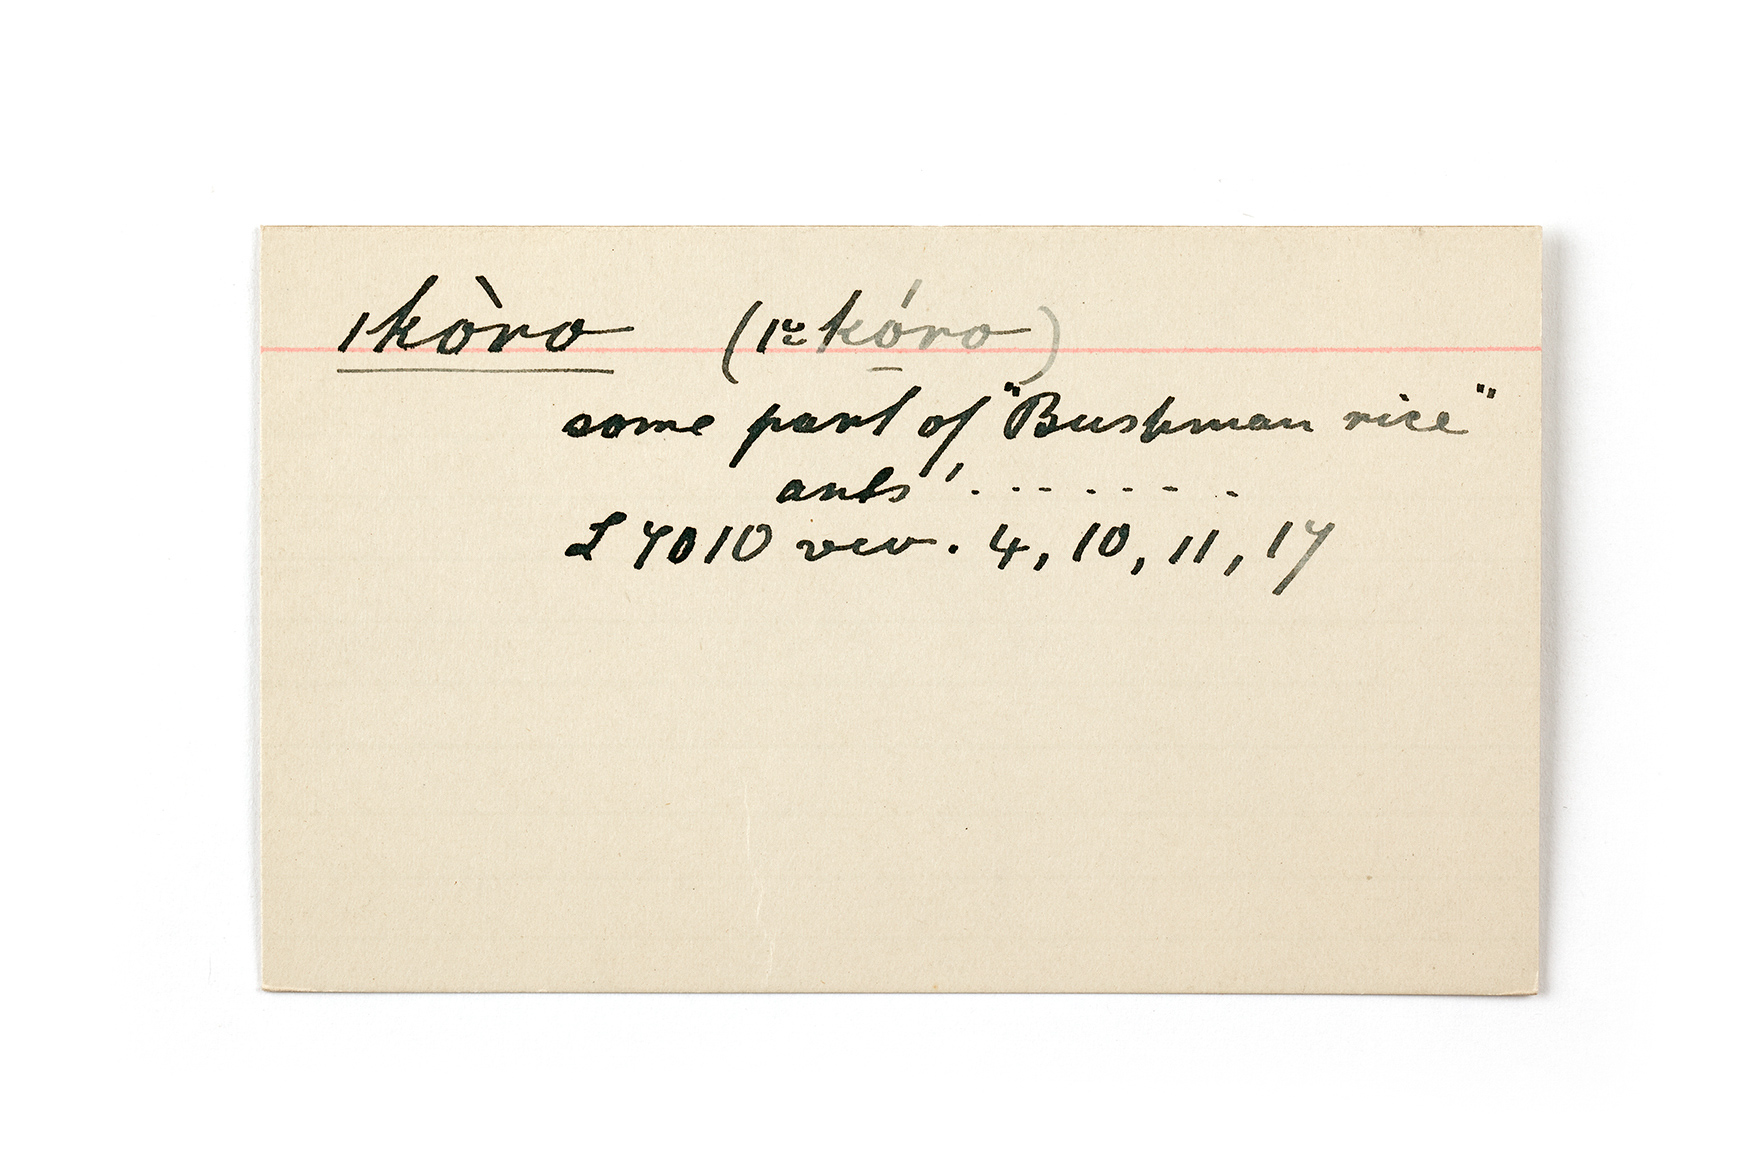 ǀkòro (ǀ꜀kóro)
some part of "Bushman rice"
ants' . . . . . . . .
L 7010 rev. 4, 10, 11, 17